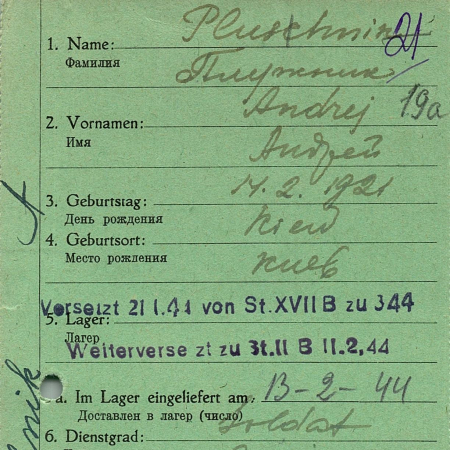 21
1. Name:
Фамилия
Плужник
Andrej 19a
2. Vornamen:
Имя
Андрей
3. Geburtstag: 14.2.1921
День рождения
4. Geburtsort: Kiew
Место рождения
Киев
Versetzt 21 1.41 von St.XVII B zu 344
5. Lager:
Лагер
Weiterverse zt zu St.II B 11.2,44
a. Im Lager eingeliefert am 13-2-44
Доставлен в лагер (число)
6. Dienstgrad: Soldat